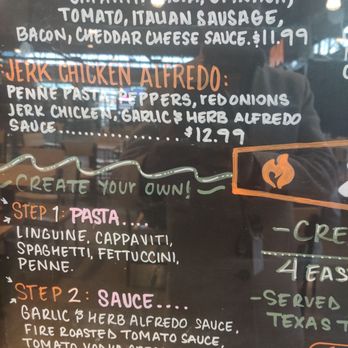 TOMATO, ITALIAN SAUSAGE,
BACON, CHEDDAR CHEESE SAUCE. $11.99
JERK CHICKEN ALFREDO:
PENNE PASTA, PEPPERS, RED ONIONS
JERK CHICKEN, GARLIC & HERB ALFREDO
SAUCE.................$12.99
CREATE YOUR OWN!
STEP 1: PASTA....
LINGUINE, CAPPAVITI,
SPAGHETTI, FETTUCCINI,
PENNE.
STEP 2: SAUCE....
GARLIC & HERB ALFREDO SAUCE,
FIRE ROASTED TOMATO SAUCE,
TOMATO VODKA
-CRE
4 EAS
-SERVED
TEXAS T